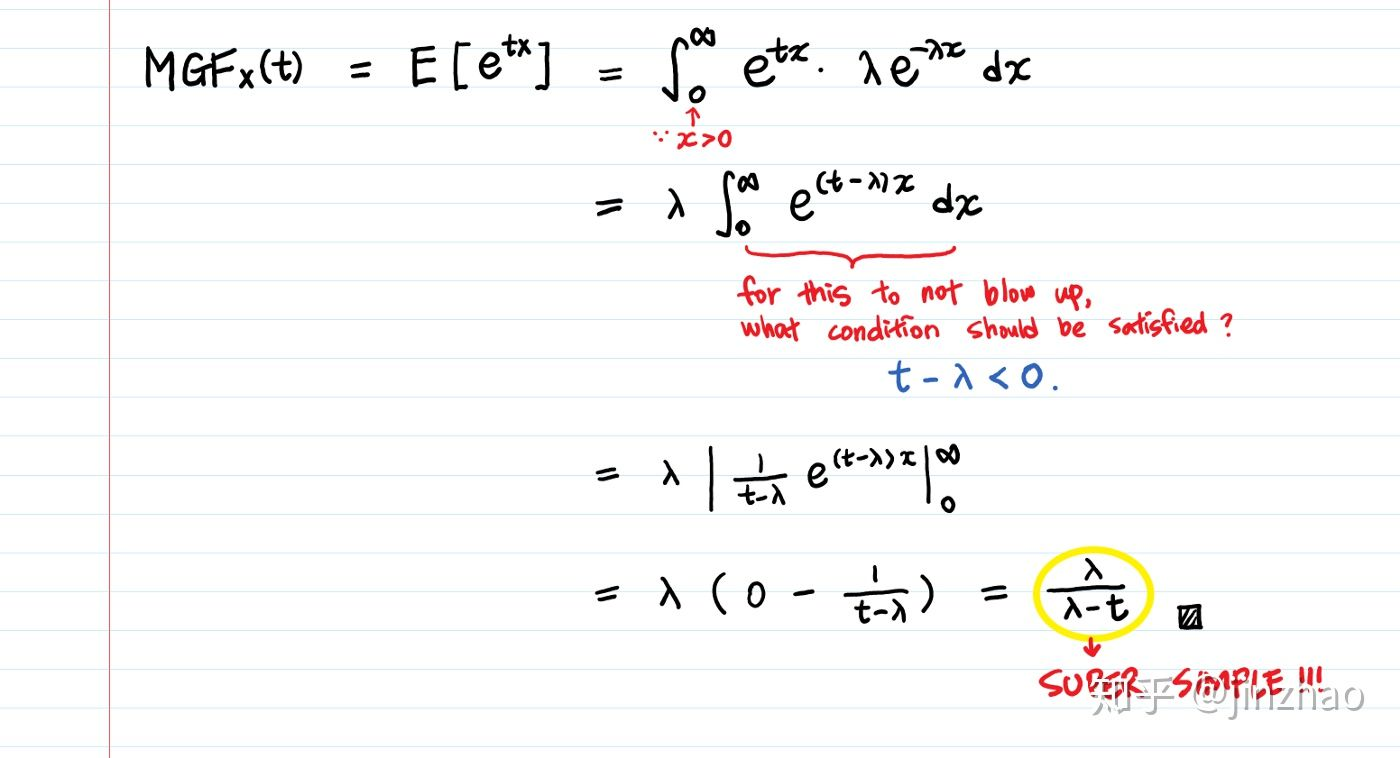 MGFₓ(t) = E[eᵗˣ] = ∫₀^∞ e^{tx} · λe^{-λx} dx
↑
∵ x>0
= λ ∫₀^∞ e^{(t-λ)x} dx
for this to not blow up,
what condition should be satisfied?
t - λ < 0.
= λ | 1/(t-λ) e^{(t-λ)x} |₀^∞
= λ (0 - 1/(t-λ)) = λ/(λ-t)
↓
SUPER SIMPLE!!!
知乎 @jinzhao